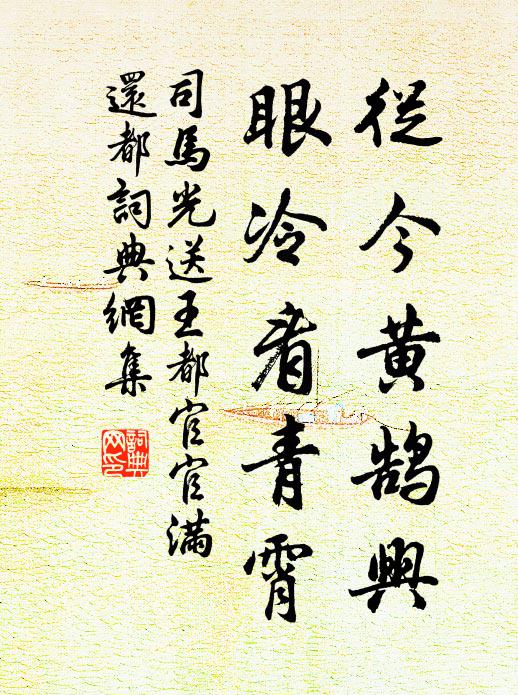 從今黃鵠興
眼冷看青霄
司馬光送王都官官滿
還都詞典網集
詞典
网印